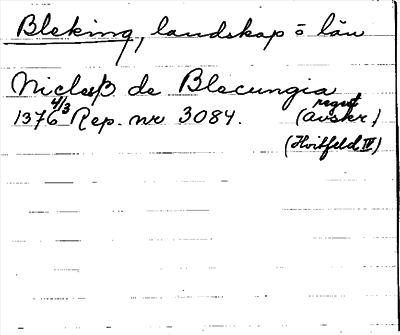 Bleking, landskap o län
Niclaß de Blecungia
1376 4/3 Rep. nr 3084. (avskr.) regest
(Hvitfeld IV)